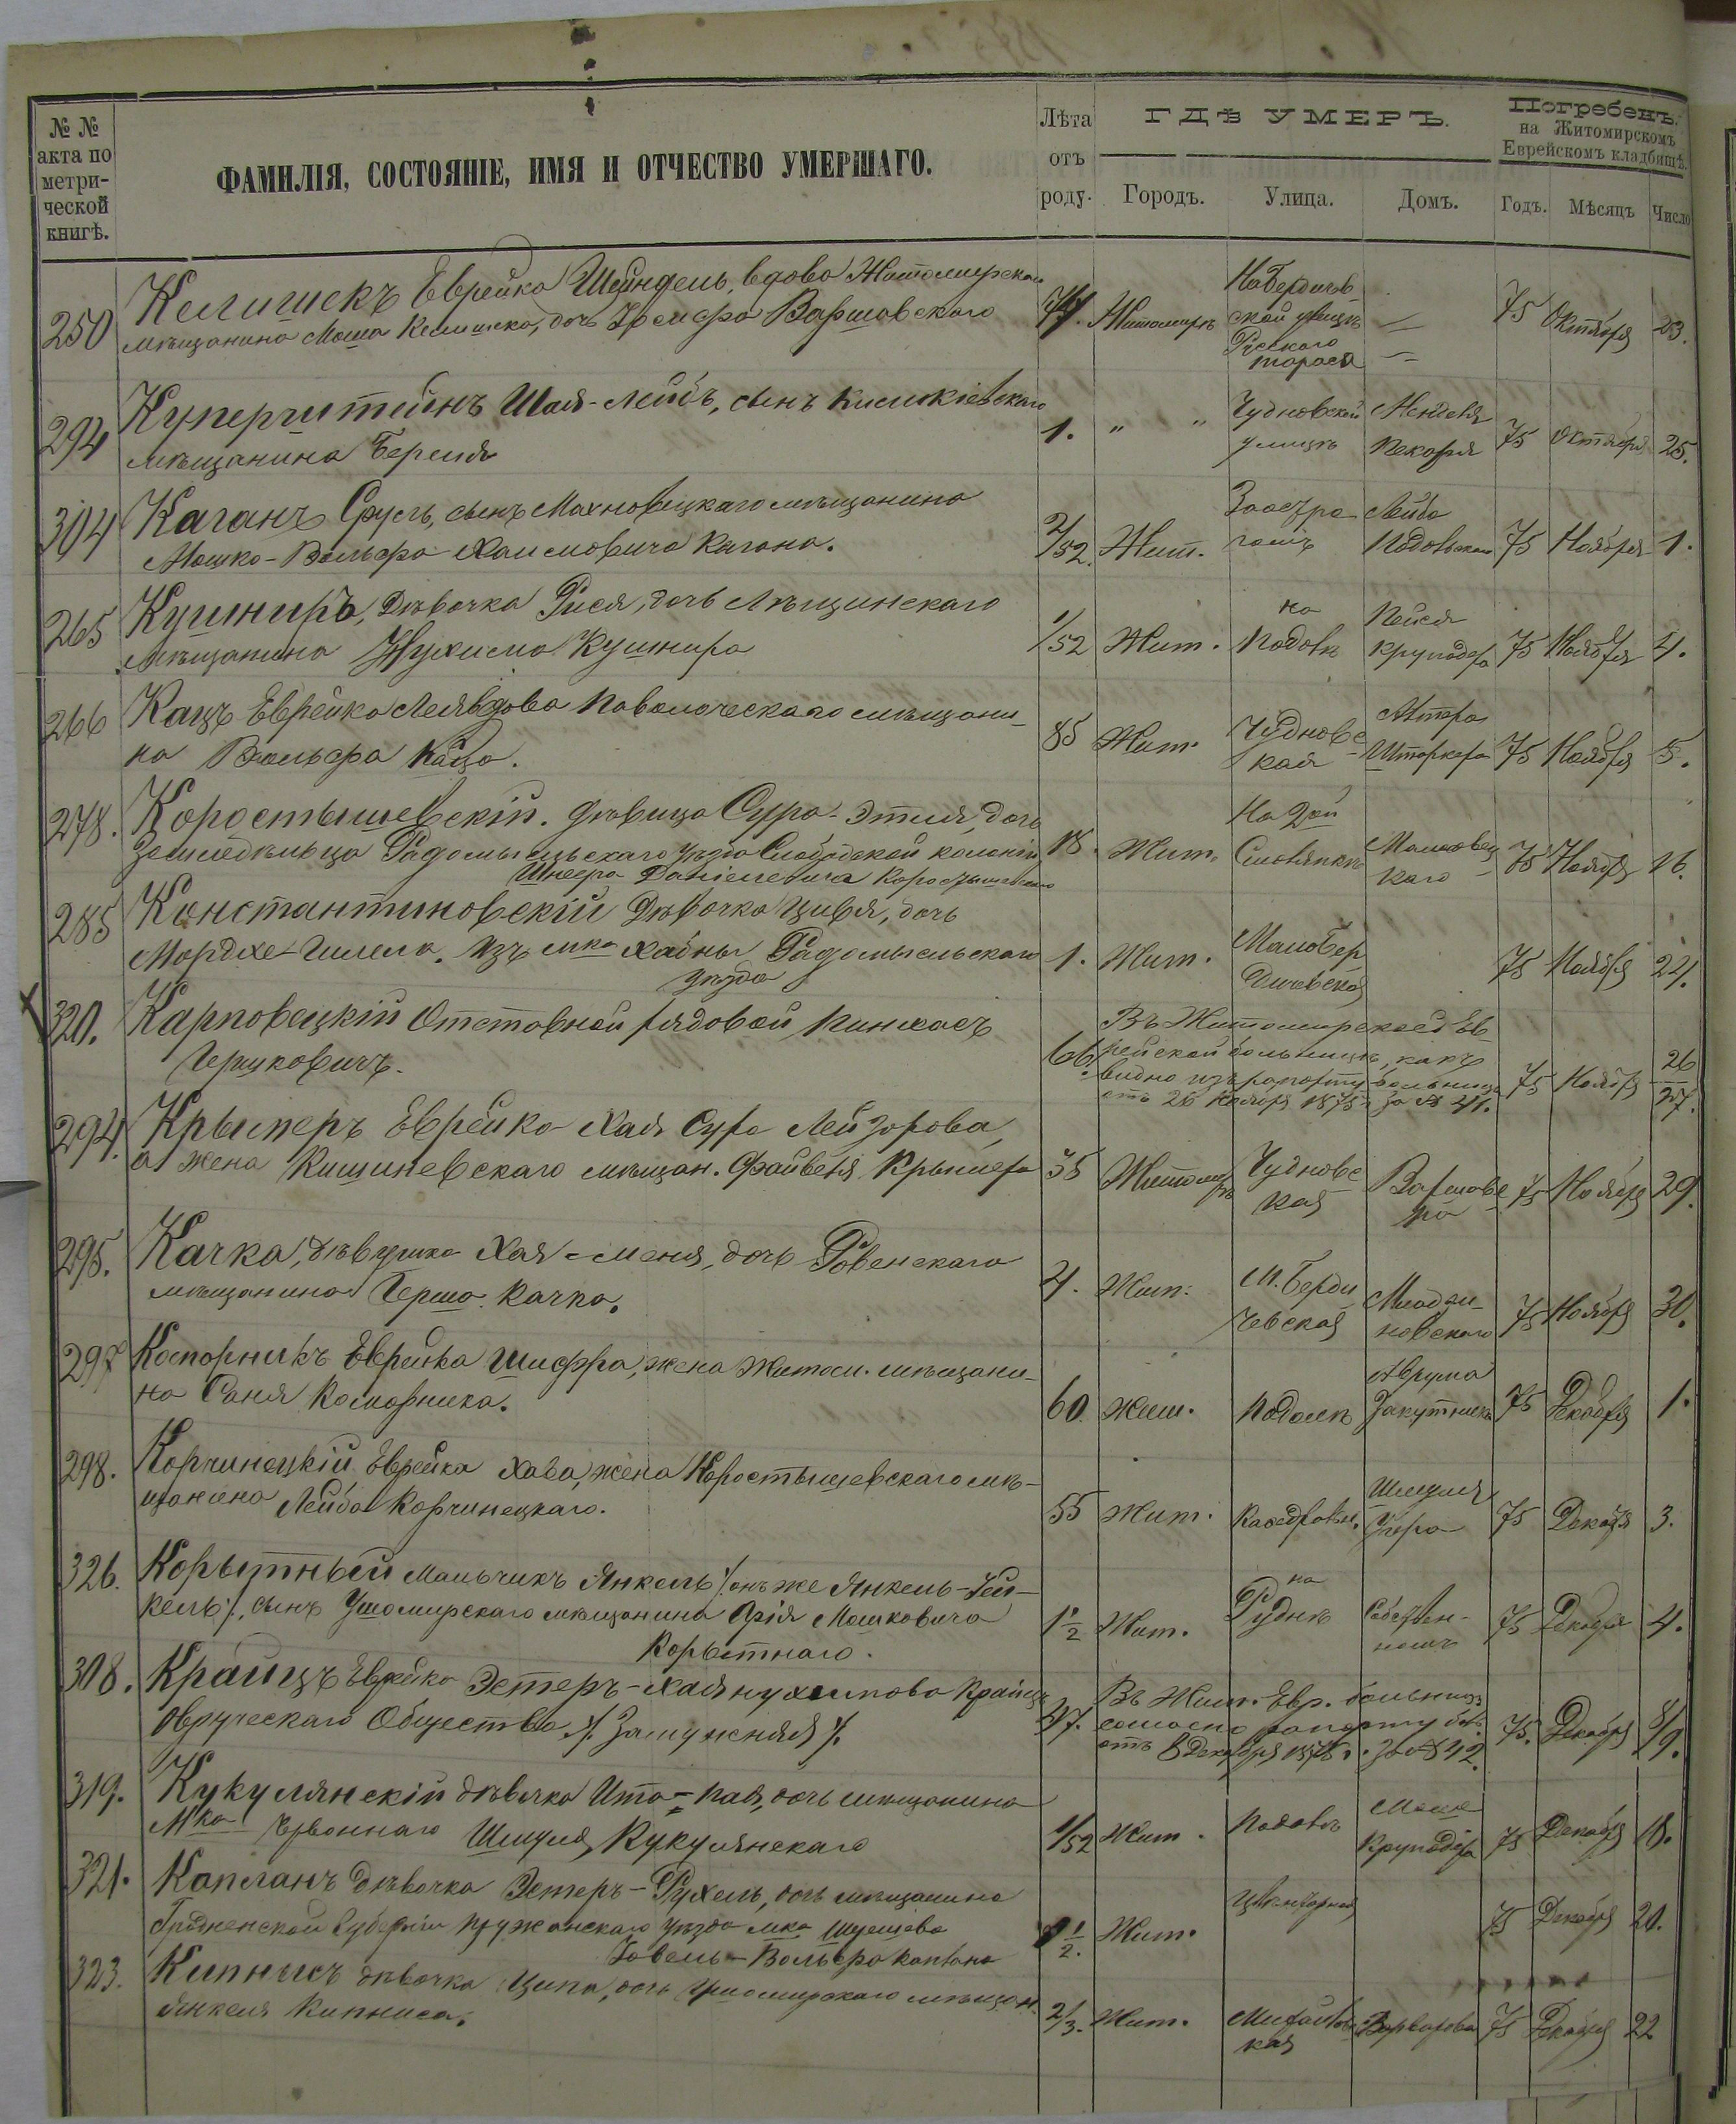 № №
акта по
метри-
ческой
книгѣ.
ФАМИЛІЯ, СОСТОЯНІЕ, ИМЯ И ОТЧЕСТВО УМЕРШАГО.
Лѣта
отъ
роду.
ГДѢ УМЕРЪ.
Городъ. Улица. Домъ.
Погребенъ.
на Житомирскомъ
Еврейскомъ кладбищѣ.
Годъ. Мѣсяцъ Число
250 Келишекъ Еврейка Шейндель, вдова Житомирскаго
мѣщанина Моша Келишека, дочь Варшавскаго
Житомиръ
Русскаго
75 Октября 23.
294 Куперштейнъ Шая-Лейбъ, сынъ
мѣщанина Береля
1. " " Чудновской
улицѣ
Менделя
Пекаря
75 Октября 25.
304 Каганъ Сруль, сынъ Махновецкаго мѣщанина
Мошко-Вольфа Хаимовича Кагана.
2/52. Жит. Лейба
75 Ноября 1.
265 Кушниръ, Дѣвочка Рися, дочь
Мѣщанина Нухима Кушнира
1/52 Жит. на
Подолѣ
Пейся
Круподера
75 Ноября 4.
266 Кацъ Еврейка Лея вдова Паволочскаго мѣщани-
на Вольфа Каца.
85 Жит. Чудновс
кая
75 Ноября 5.
278. Коростышевскій. дѣвица Сура-Этля, дочь
земледѣльца Радомысльскаго уѣзда Слободской колоніи
Шнеера Даніелевича
18. Жит. На 2ой
75 Ноября 16.
285 Константиновскій Дѣвочка Цивья, дочь
Мордхе-Гилела, изъ мка Хабны Радомысльскаго
уѣзда
1. Жит. Малобер
дичевская
75 Ноября 24.
320. Карповецкій Отставной рядовой Пинхасъ
Гершковичъ.
66. Въ Житомирской Ев-
рейской больницѣ, какъ
видно изъ рапорта больницы
отъ 26 Ноября 1875 г за № 41.
75 Ноября 26
27.
294. Крымеръ Еврейка Хая Сура Лейзорова,
а жена Кишиневскаго мѣщан. Файвеля Крымера
35 Житомиръ Чудновс
кая
75 Ноября 29.
295. Качка, дѣвушка Хая-Меня, дочь Ровенскаго
мѣщанина Герша Качка.
4. Жит. М. Берди
чевская
75 Ноября 30.
297 Коморникъ Еврейка Шифра, жена Житом. мѣщани-
на Саня Коморника.
60. Жит. Подолъ Аврума
Закутника
75 Декабря 1.
298. Корчинецкій Еврейка Хава, жена Коростышевскаго мѣ-
щанина Лейба Корчинецкаго.
55 Жит. Шмуля
75 Декабря 3.
326. Корытный Мальчикъ Янкель /онъ же Янкель-Хей-
кель/, сынъ Ушомирскаго мѣщанина Арія Мошковича
Корытнаго.
1 1/2 Жит. на
Руднѣ
Собствен-
номъ
75 Декабря 4.
308. Крайцъ Еврейка Эстеръ-Хая Нухимова Крайцъ
Овручскаго Общества /. Замужняя /.
37. Въ Жит. Евр. больницѣ
согласно рапорту бол.
отъ 8 Декабря 1875 г. за № 42.
75. Декабря 8/9.
319. Кукулянскій дѣвочка Ита-Пая, дочь мѣщанина
Мка Червоннаго Шмуля Кукулянскаго
1/52 Жит. Подолъ
Круподера
75 Декабря 18.
321. Капланъ Дѣвочка Эстеръ-Рухель, дочь мѣщанина
Гродненской Губерніи Пружанскаго уѣзда мка Шерешева
Говель-Вольфа Каплана
1/2. Жит.
75 Декабря 20.
323. Кипнисъ дѣвочка Ципа, дочь Ушомирскаго мѣщан.
Янкеля Кипниса.
2/3. Жит. Михайловс
кая
Варварова 75 Декабря 22